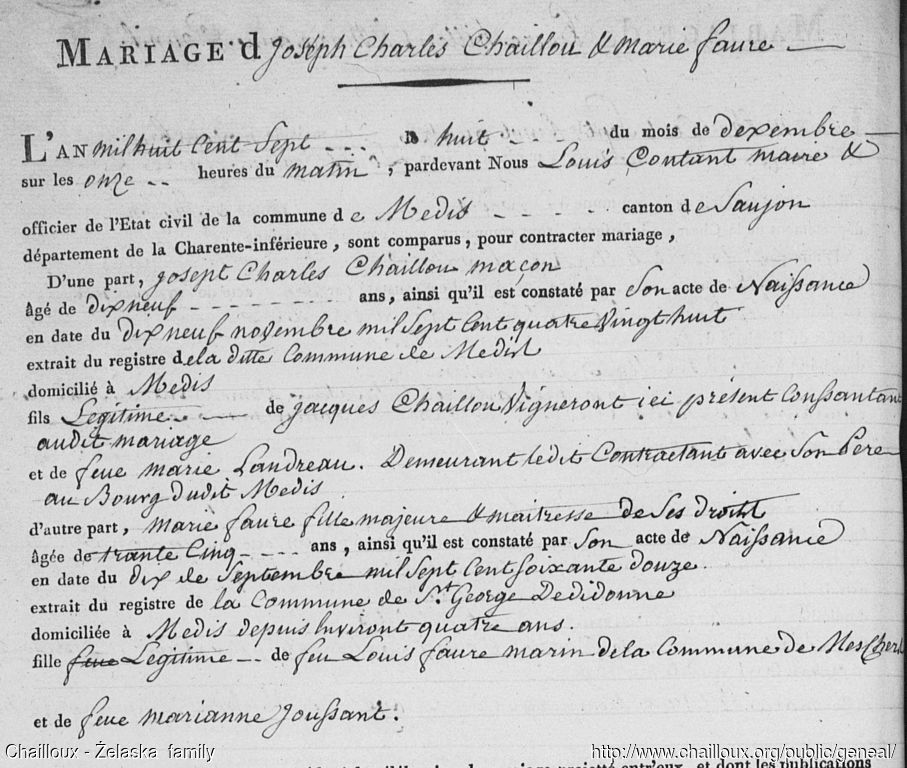 MARIAGE d joseph Charles Chaillou & marie faure
L'AN mil huit Cent Sept le huit du mois de dexembre
sur les onze heures du matin, pardevant Nous Louis Contant maire &
officier de l'Etat civil de la commune de Medis canton de Saujon
département de la Charente-inférieure, sont comparus, pour contracter mariage,
D'une part, josept Charles Chaillou maçon
âgé de dix neuf ans, ainsi qu'il est constaté par Son acte de Naissance
en date du dix neuf novembre mil Sept Cent quatre Vingt huit
extrait du registre de la ditte Commune de Medis
domicilié à Medis
fils Legitime de jacques Chaillou Vigneront ici présent Conssantant
audit mariage
et de feue marie Landreau. Demeurant ledit Contractant avec Son Pere
au Bourg dudit Medis
d'autre part, marie faure fille majeure & maitresse de Ses droitt
âgée de trante Cinq ans, ainsi qu'il est constaté par Son acte de Naissance
en date du dix de Septembre mil Sept Cent Soixante douze.
extrait du registre de la Commune de St George Dedidonne
domiciliée à Medis depuis Environt quatre ans.
fille feue Legitime de feu Louis faure marin de la Commune de Meschers
et de feue marianne Joussant.
Chailloux - Żelaska family
http://www.chailloux.org/public/geneal/
projetté entr'eux, et dont les publications